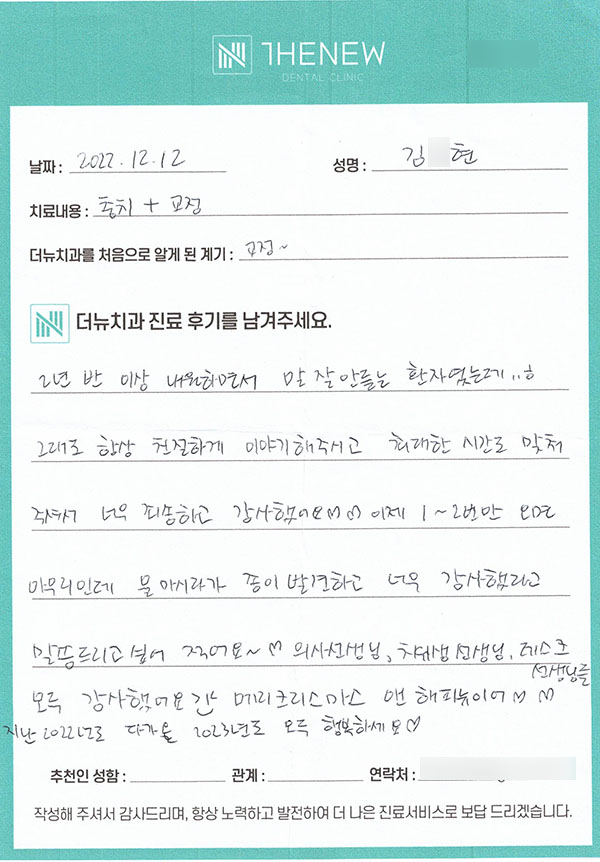 THENEW
DENTAL CLINIC
날짜 : 2022.12.12 성명 : 김 현
치료내용 : 충치 + 교정
더뉴치과를 처음으로 알게 된 계기 : 교정~
더뉴치과 진료 후기를 남겨주세요.
2년 반 이상 내원하면서 말 잘 안듣는 환자였는데..ㅎ
그래도 항상 친절하게 이야기해주시고 최대한 시간도 맞춰
주셔서 너무 죄송하고 감사했어요♡♡ 이제 1~2번만 오면
마무리인데 물 마시라가 종이 발견하고 너무 감사했다고
말씀드리고 싶어 적어요~♡ 의사선생님, 치위생선생님, 데스크
선생님들
모두 감사했어요 메리크리스마스 앤 해피뉴이어♡♡
지난 2022년도 다가올 2023년도 모두 행복하세요♡
추천인 성함 : 관계 : 연락처 :
작성해 주셔서 감사드리며, 항상 노력하고 발전하여 더 나은 진료서비스로 보답 드리겠습니다.